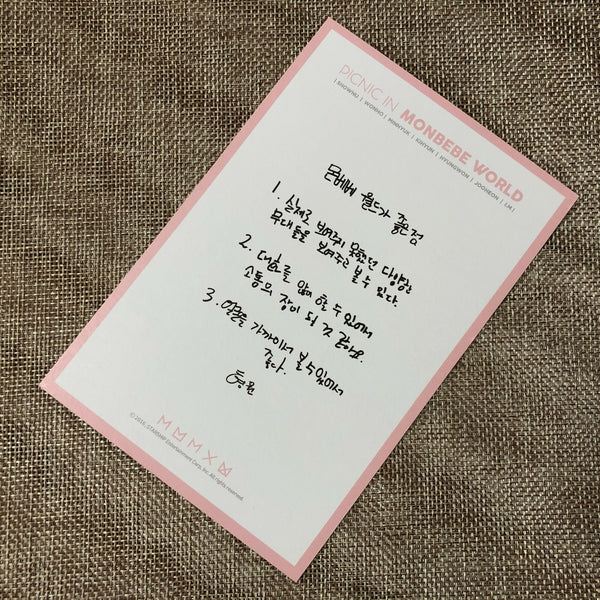 PICNIC IN MONBEBE WORLD
| SHOWNU | WONHO | MINHYUK | KIHYUN | HYUNGWON | JOOHEON | I.M |
몬베베 월드가 좋은점
1. 실제로 보여주지 못했던 다양한
무대들을 보여주고 볼 수 있다.
2. 대화를 많이 할 수 있어서
소통의 장이 되 것 같아요.
3. 얼굴을 가까이서 볼 수 있어서
좋다.
형원
© 2016. STARSHIP Entertainment Corp, Inc. All rights reserved.